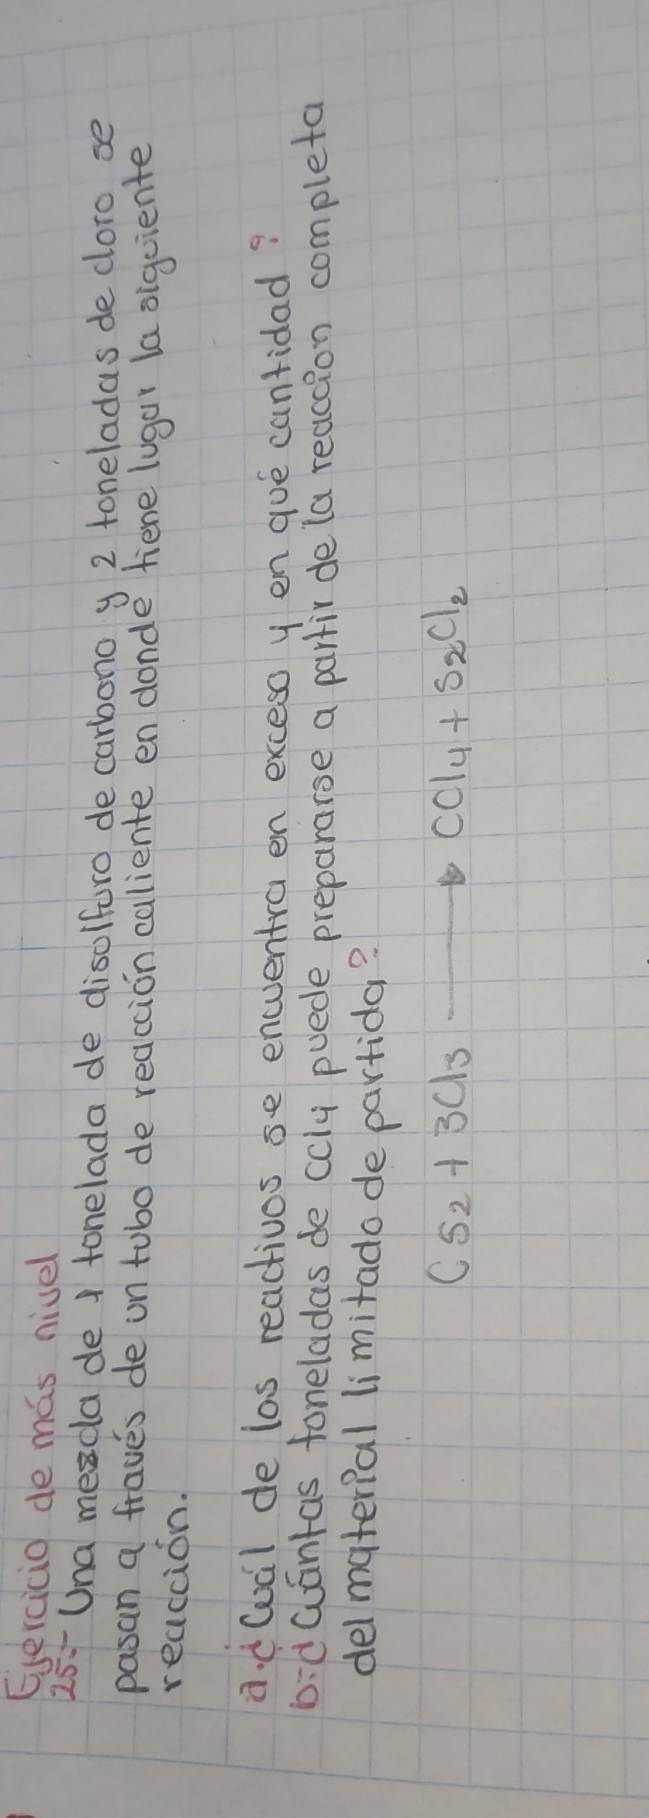 Ejercicio de más nivel
25.- Una mezcla de 1 tonelada de disolfuro de carbono y 2 toneladas de cloro se
pasan a través de un tubo de reacción caliente en donde tiene lugar la siguiente
reacción.
a.¿Cuál de los reactivos se encuentra en exceso y en qué cantidad?
b.¿Cuántas toneladas de CCl4 puede prepararse a partir de la reacción completa
del material limitado de partida?
CS2 + 3Cl3 → CCl4 + S2Cl2